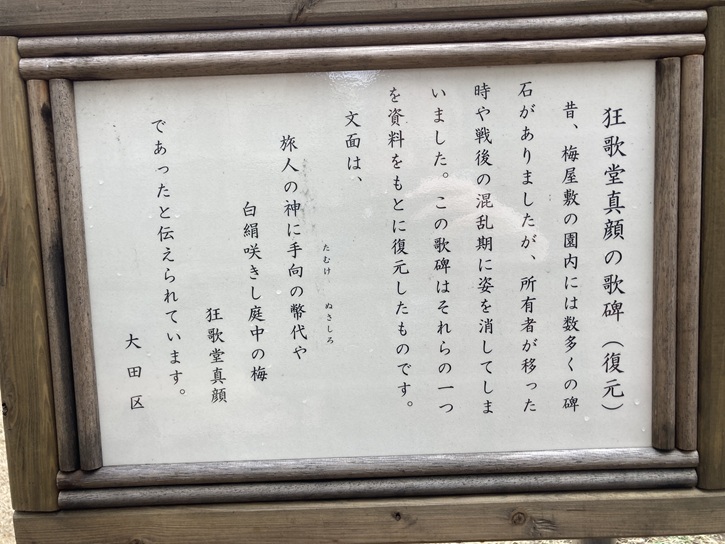 狂歌堂真顔の歌碑（復元）
昔、梅屋敷の園内には数多くの碑
石がありましたが、所有者が移った
時や戦後の混乱期に姿を消してしま
いました。この歌碑はそれらの一つ
を資料をもとに復元したものです。
文面は、
たむけ ぬさしろ
旅人の神に手向の幣代や
白絹咲きし庭中の梅
狂歌堂真顔
であったと伝えられています。
大田区